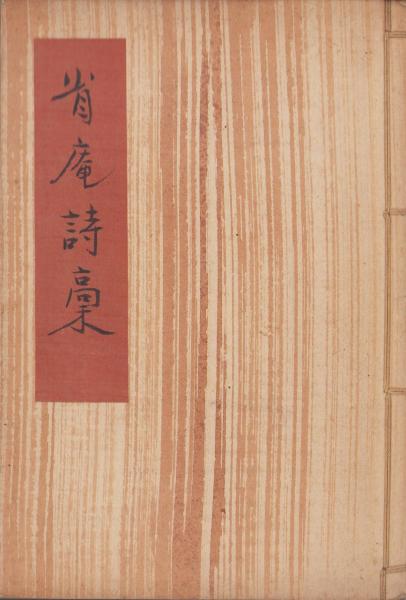 省庵詩稾